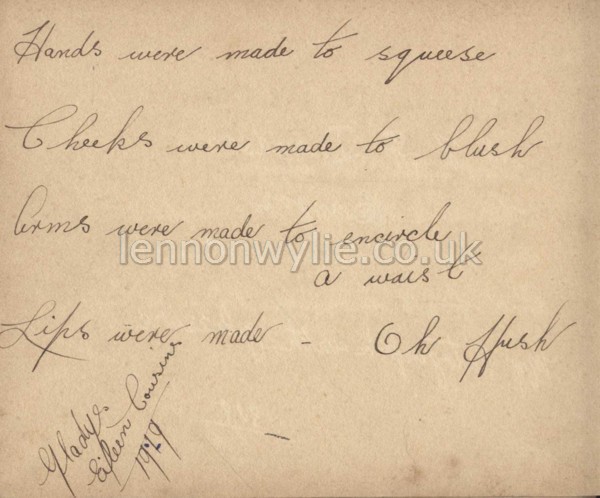 Hands were made to squeese
Cheeks were made to blush
Arms were made to encircle
a waist
Lips were made - Oh Hush
Gladys
Eileen Cousins
1919
lennonwylie.co.uk